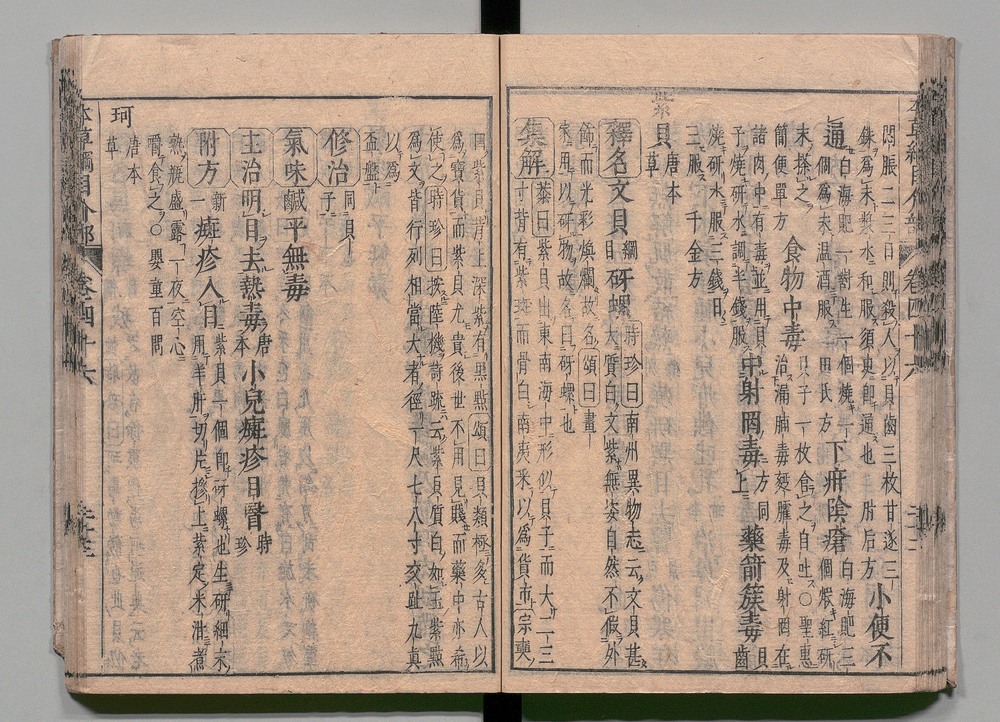 悶脹二三日則殺人以貝齒三枚甘遂二
銖爲末漿水和服須臾卽通也 肘后方 小便不
通 白海𧴩一對生一個燒一
個爲末温酒服 田氏方 下疳陰瘡 白海𧴩三
個煅紅研
末搽之
簡便單方 食物中毒 貝子一枚含之自吐○聖惠
治漏脯毒麪臛毒及射罔在
諸肉中有毒並用貝
子燒研水調半錢服 中射罔毒 方同上 藥箭簇毒 貝齒
燒研水服三錢日
三服 千金方
紫貝 唐本草
釋名 文貝 綱目 砑螺 時珍曰南州異物志云文貝甚
大質白文紫無姿自然不假外
飾而光彩煥爛故名頌曰畫
家用以砑物故名曰砑螺也
集解 恭曰紫貝出東南海中形似貝子而大二三
寸背有紫斑而骨白南夷采以爲貨市宗奭
曰紫貝背上深紫有黑點頌曰貝類極多古人以
爲寶貨而紫貝尤貴後世不用見賤而藥中亦希
使之時珍曰按陸機詩疏云紫貝質白如玉紫點
爲文皆行列相當大者徑一尺七八寸交趾九真
以爲
盃盤
修治 同貝子
氣味 鹹平無毒
主治 明目去熱毒 唐本 小兒癍疹目瞖 時珍
附方 新一 癍疹入目 紫貝一個卽砑螺也生研細末
用羊肝切片摻上紮定米泔煮
熟瓶盛露一夜空心
嚼食之○嬰童百問
珂 唐本草
本草綱目介部 卷四十六